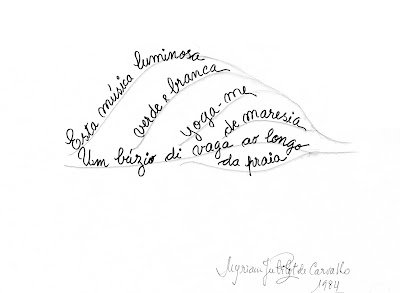 Esta música luminosa
verde e branca
yoga-me
de maresia
Um búzio di vaga ao longo
da praia
Myriam Jubilot de Carvalho
1984